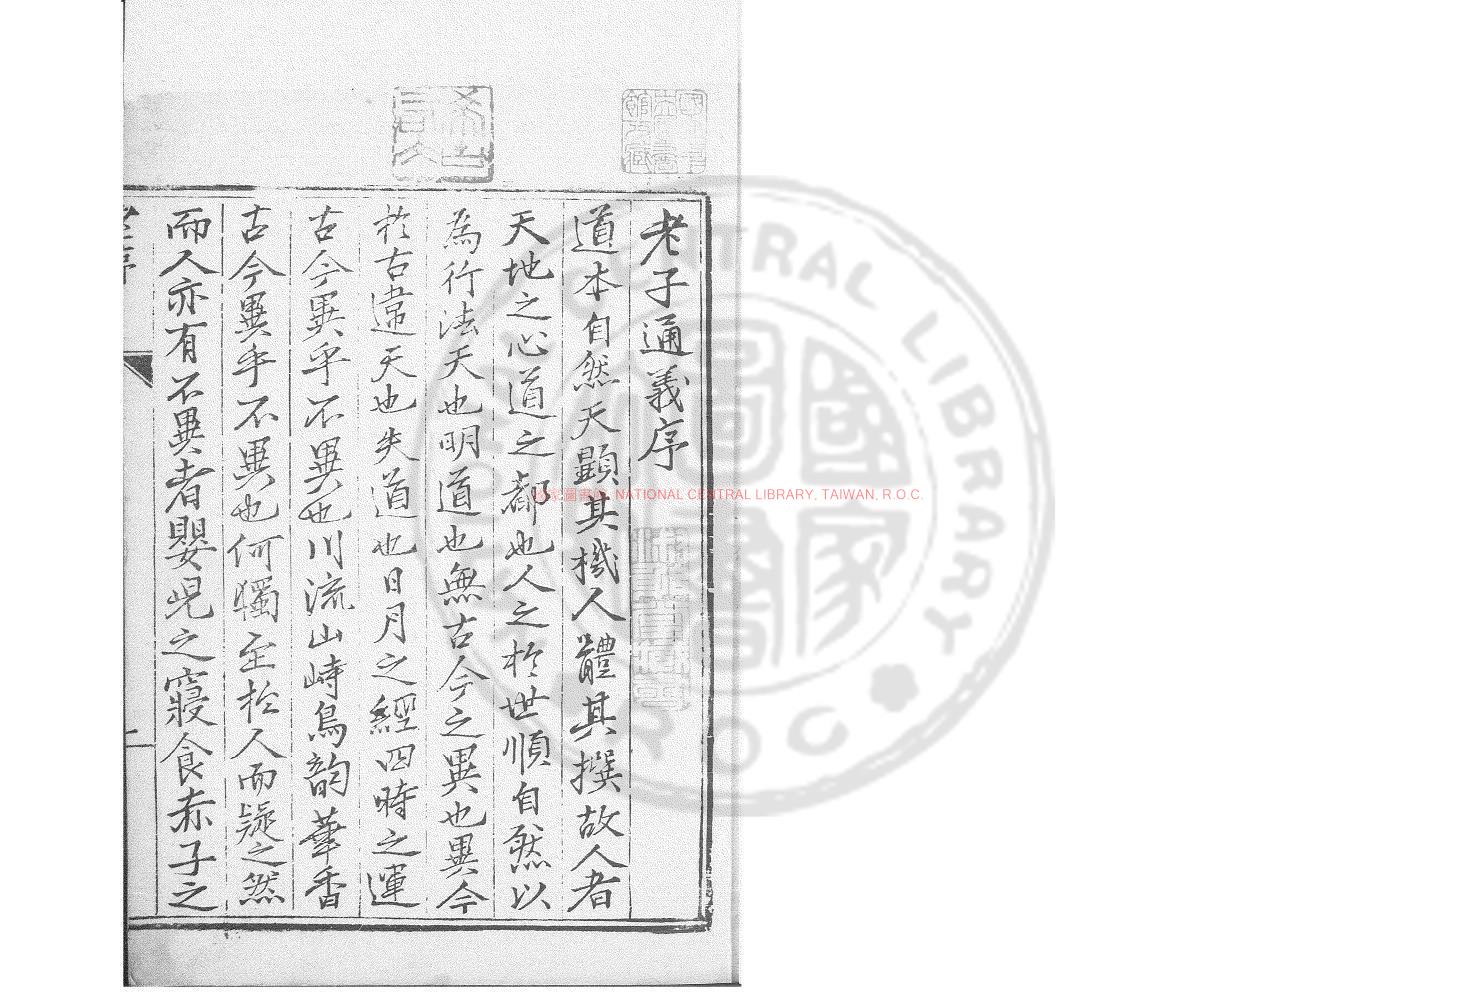 老子通義序
道本自然天顯其機人體其撰故人者
天地之心道之都也人之於世順自然以
為行法天也明道也無古今之異也異今
於古違天也失道也日月之經四時之運
古今異乎不異也川流山峙鳥韵華香
古今異乎不異也何獨至於人而疑之然
而人亦有不異者嬰児之寢食赤子之
國家圖書館, NATIONAL CENTRAL LIBRARY, TAIWAN, R.O.C.
NATIONAL CENTRAL LIBRARY
R.O.C
國家圖書